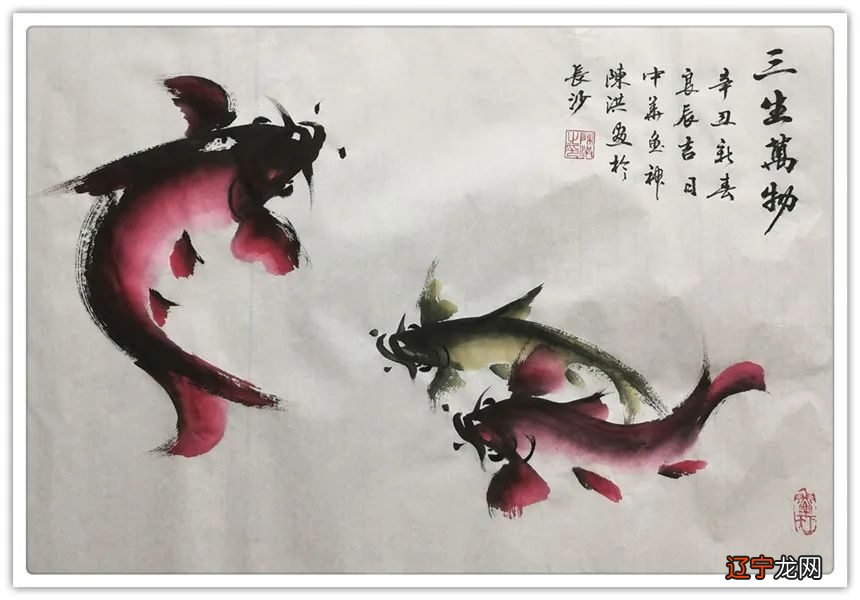 三生萬物
辛丑新春
良辰吉日
中華魚神
陳洪畫於
長沙
辽宁龙网